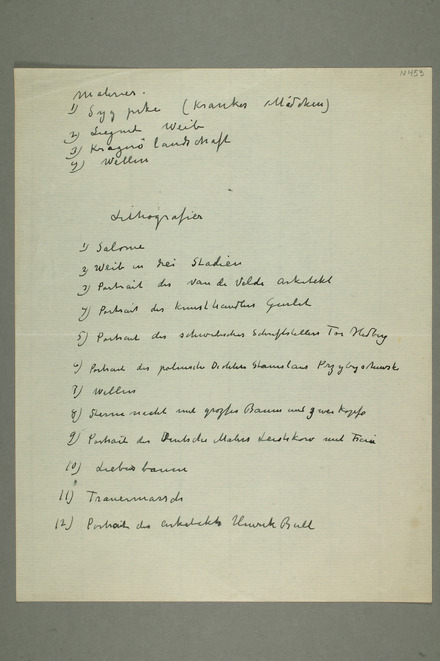 N 453
Malerier.
1) Syg pike (Krankes Mädchen)
2) Weib
3) Kragerö landschaft
4) Wellen
Lithografier
1) Salome
2) Weib in drei Stadien
3) Portrait des van de Velde Arkitekt
4) Portrait des Kunsthandlers
5) Portrait des schwedisches Schriftstellers Tor Hedberg
6) Portrait des polnische Dichters Stanislaus Przybyschewski
7) Wellen
8) Sternenacht mit grosses Baum und zwei Kopfe
9) Portrait des Deutsche Malers Leistikow und Frau
10) Liebesbaum
11) Trauermarsch
12) Portrait des arkitekts Henrik Bull